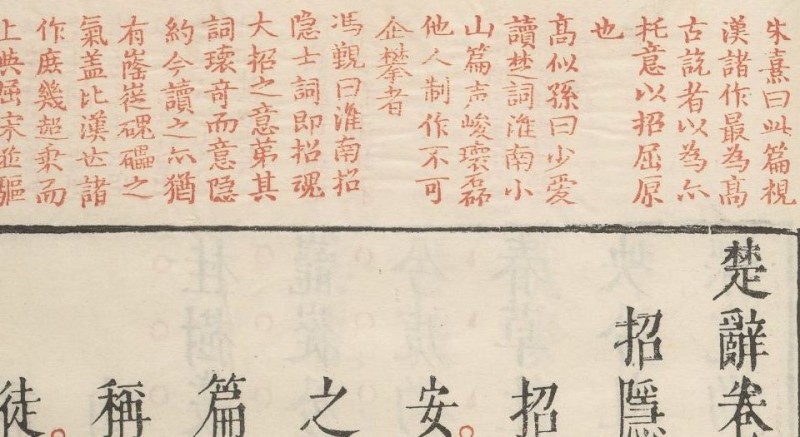 朱熹曰此篇視
漢諸作最為高
古説者以為亦
托意以招屈原
也
髙似孫曰少愛
讀楚詞淮南小
山篇声峻瓌磊
他人制作不可
企攀者
馮覲曰淮南招
隐士詞即招魂
大招之意苐其
詞瓌竒而意隠
約今讀之亦猶
有崟嵳磈礧之
氣盖比漢世諸
作庶幾超乘而
上與屈宋並驅
楚辭卷
招隱
招
安
之
篇
稱
徒